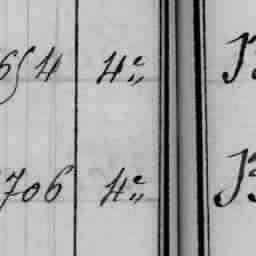 654 4e„
706 4e„